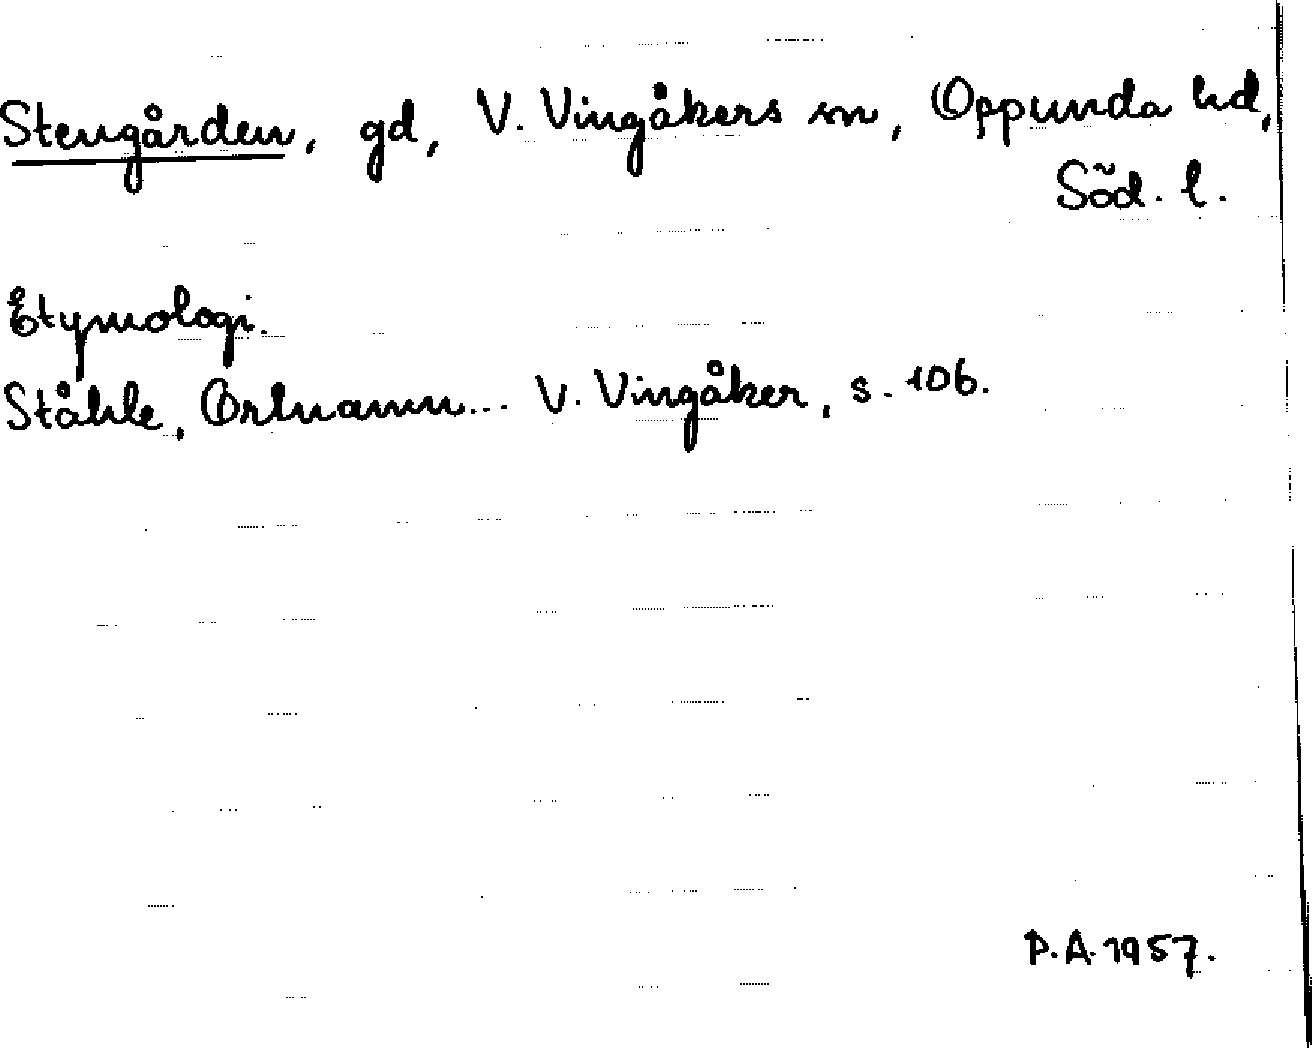 Stengården, gd, V. Vingåkers sn, Oppunda hd,
Söd. l.
Etymologi.
Ståhle, Ortnamn... V. Vingåker, s. 106.
P.A. 1957.